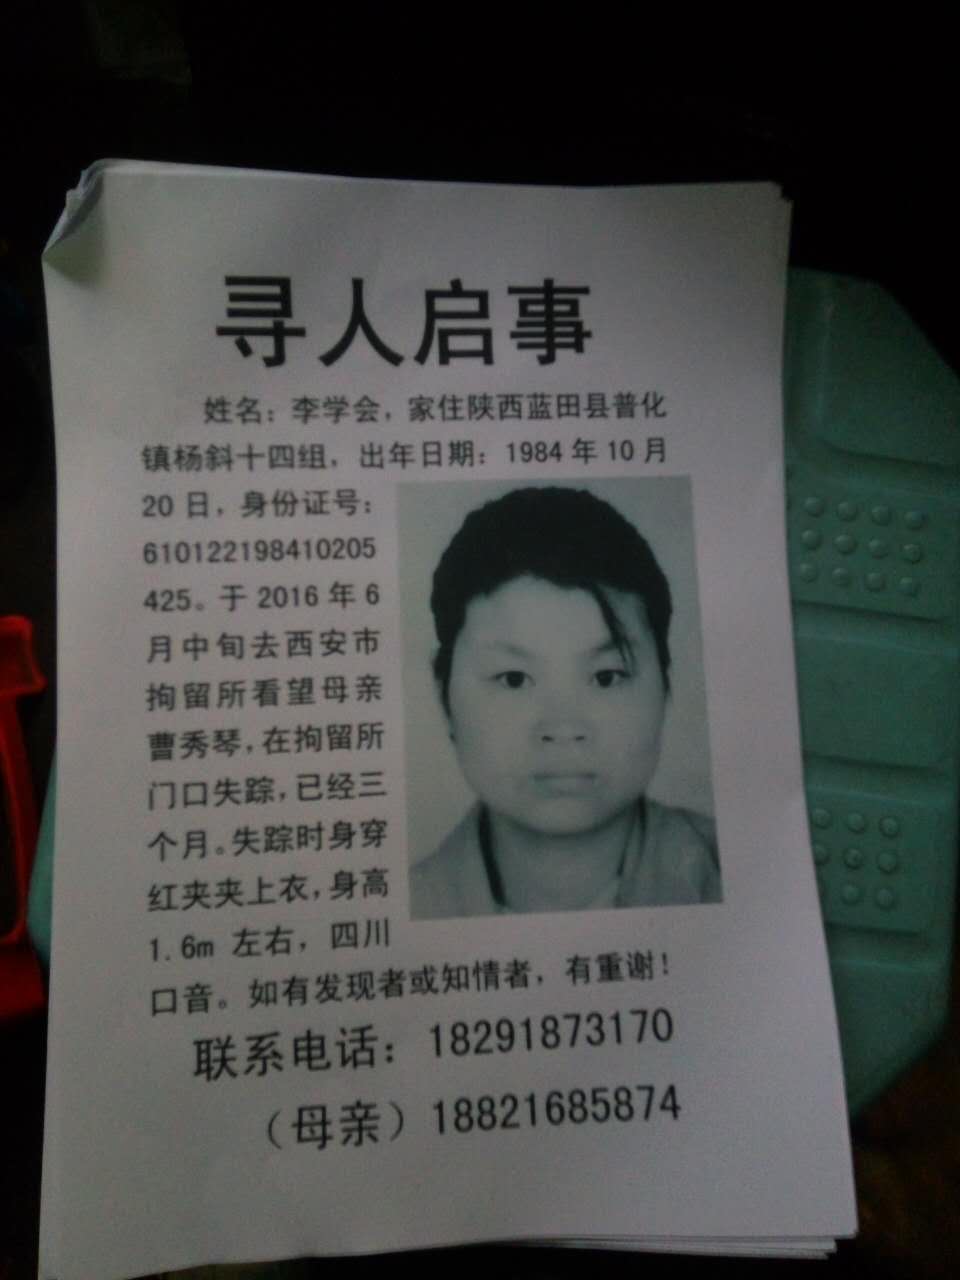 寻人启事
姓名：李学会，家住陕西蓝田县普化
镇杨斜十四组，出年日期：1984年10月
20日，身份证号：
610122198410205
425。于2016年6
月中旬去西安市
拘留所看望母亲
曹秀琴，在拘留所
门口失踪，已经三
个月。失踪时身穿
红夹夹上衣，身高
1.6m 左右，四川
口音。如有发现者或知情者，有重谢！
联系电话：18291873170
（母亲）18821685874